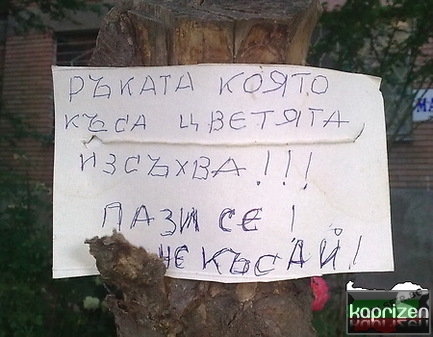 РЪКАТА КОЯТО
КЪСА ЦВЕТЯТА,
ИЗСЪХВА!!!
ПАЗИ СЕ!
НЕ КЪСАЙ!
МА
kaprizen